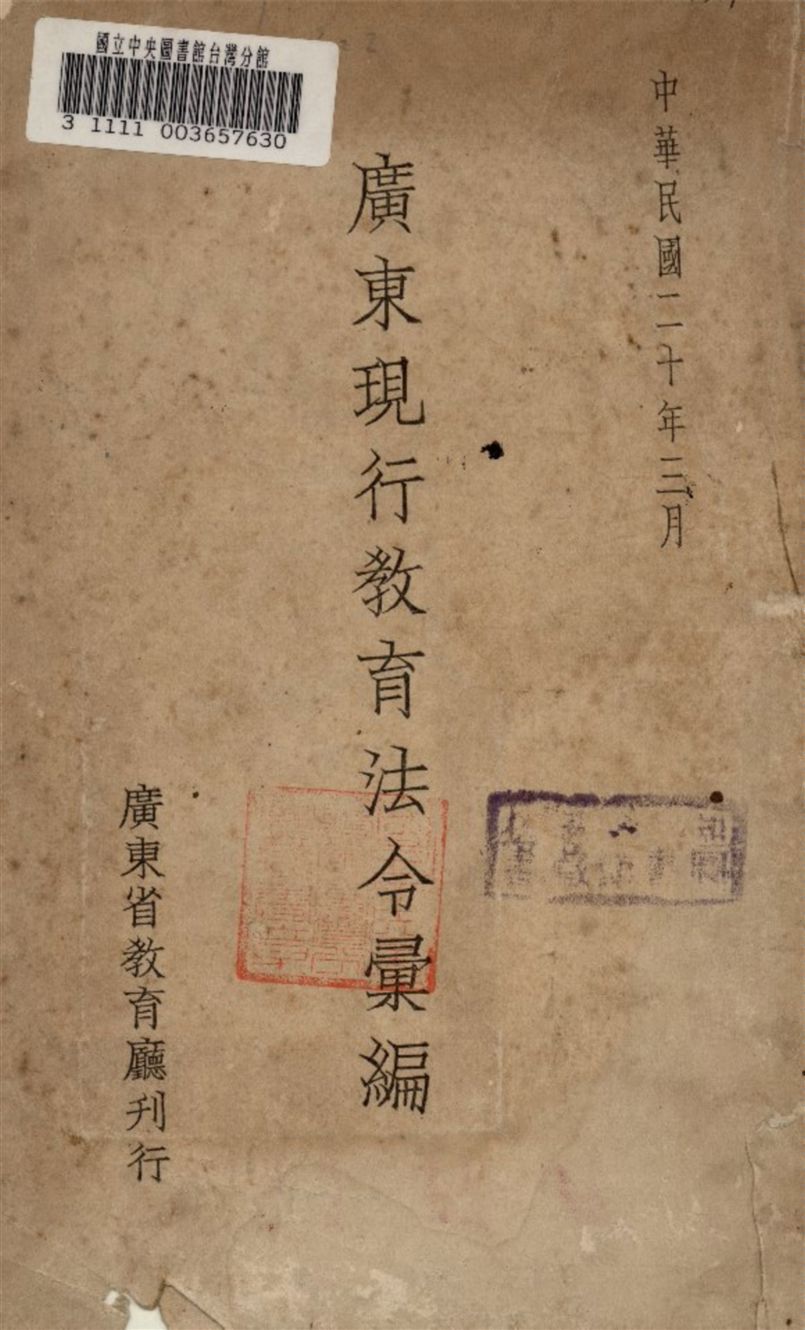 國立中央圖書館台灣分館
3 1111 003657630
中華民國二十年三月
廣東現行教育法令彙編
廣東省教育廳刊行